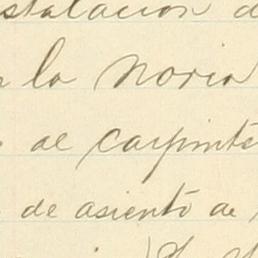 stalacion d
la noria
de carpinte
de asiento de